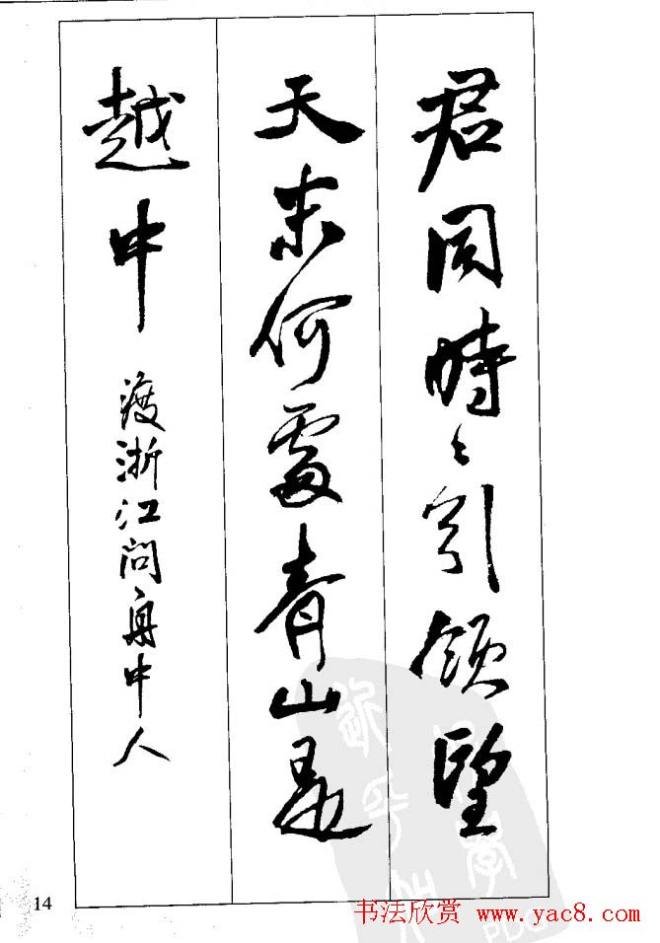 君同時〻引領望
天末何處青山是
越中 渡浙江問舟中人
14
书法欣赏 www.yac8.com